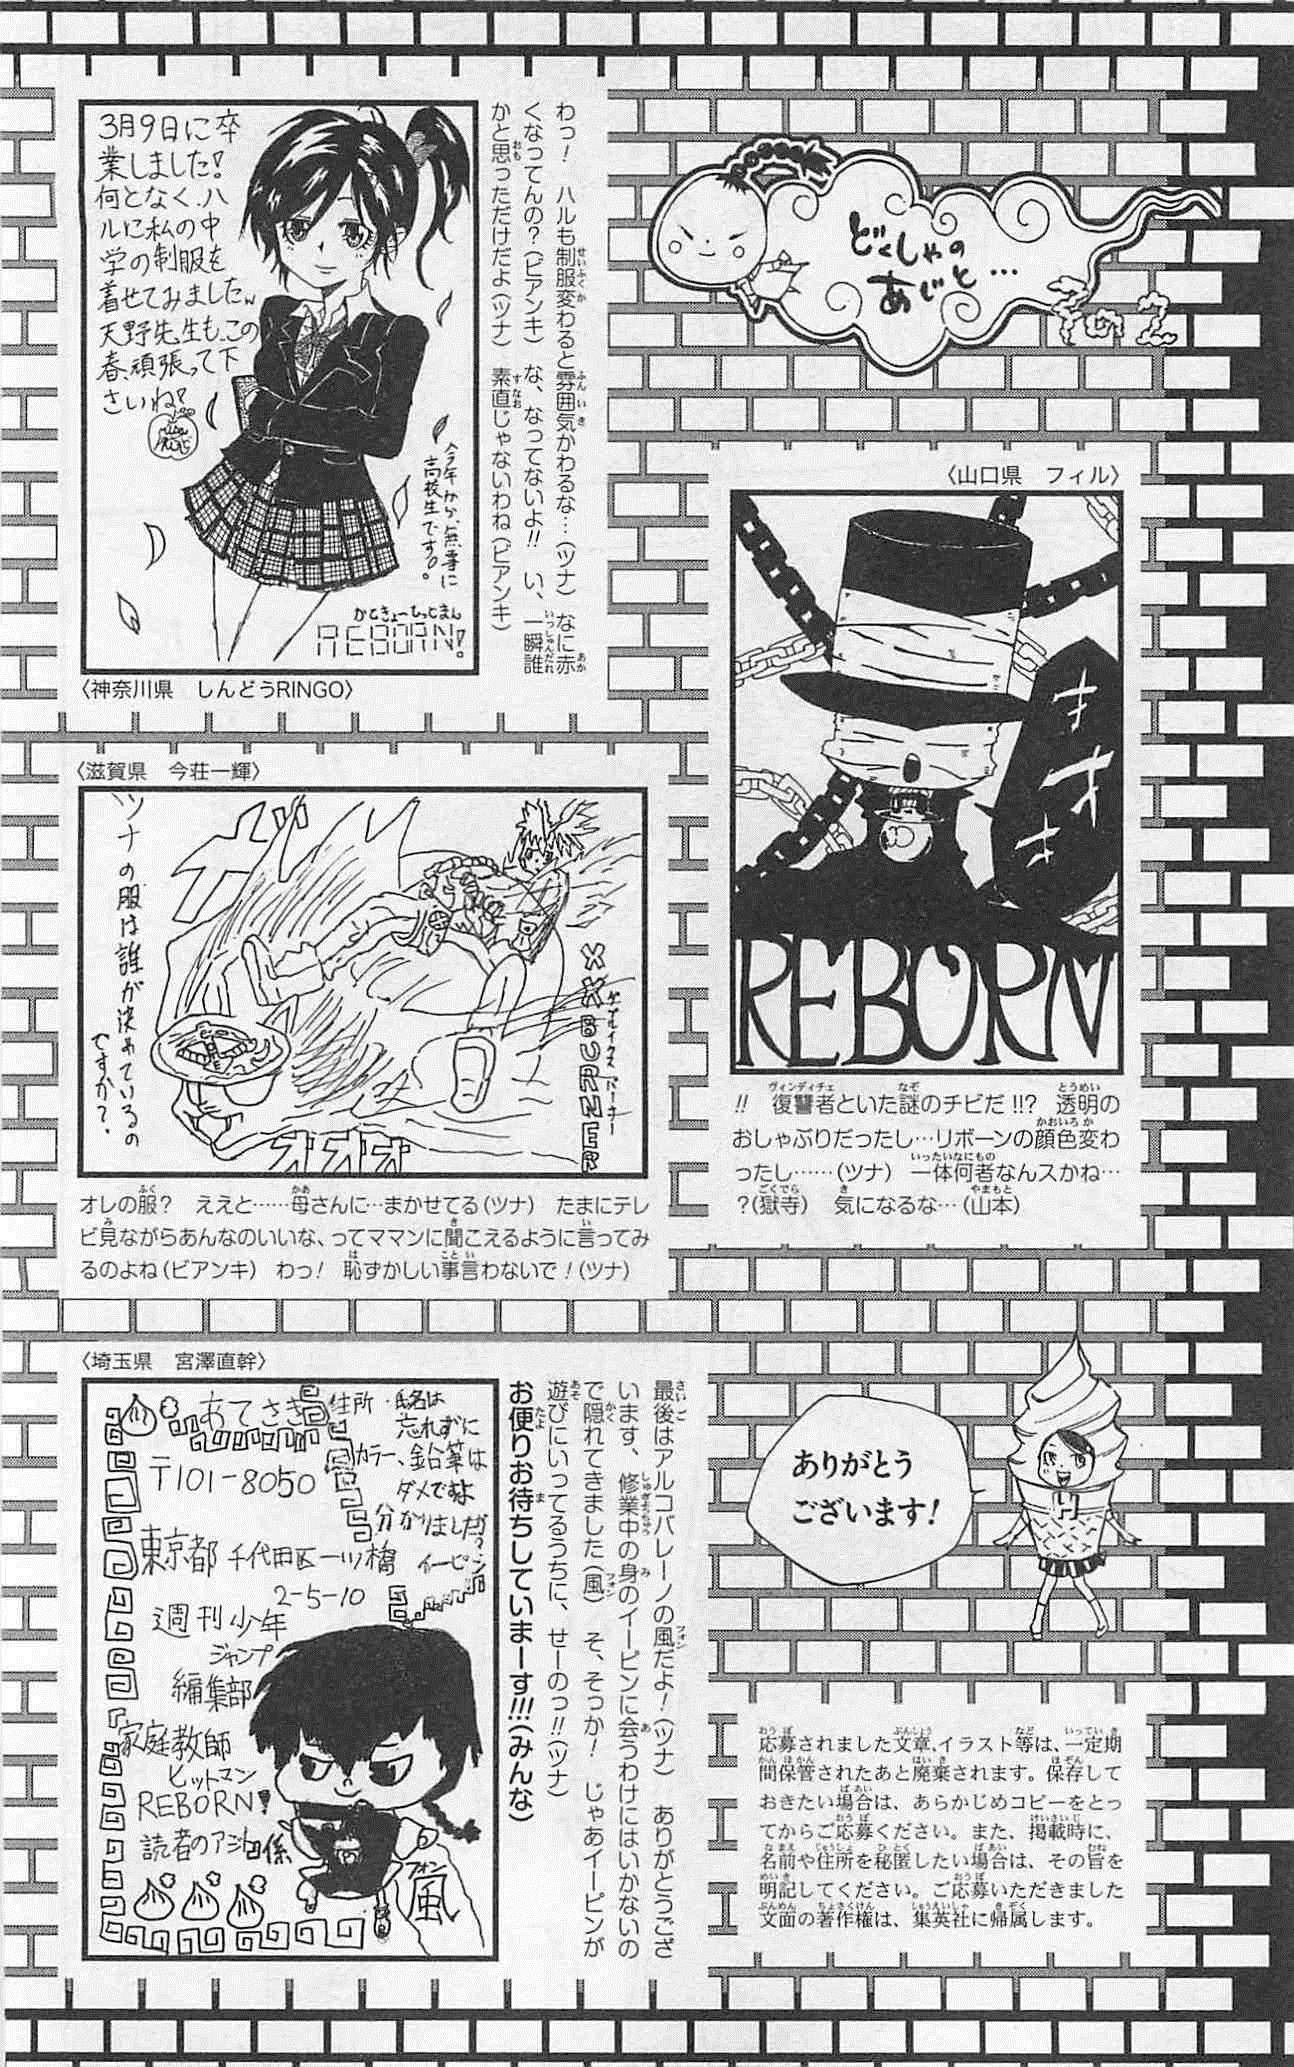 どくしゃの
あじと…
その2
〈山口県　フィル〉
オオオ
REBORN
!!　復讐者といた謎のチビだ!!?　透明の
おしゃぶりだったし…リボーンの顔色変わ
ったし……(ツナ)　一体何者なんスかね…
?(獄寺)　気になるな…(山本)
3月9日に卒
業しました!
何となく、ハ
ルに私の中
学の制服を
着せてみましたw
天野先生も、この
春、頑張って下
さいね!
今年から、無事に
高校生です。
かてきょーひっとまん
REBORN!
〈神奈川県　しんどうRINGO〉
わっ!　ハルも制服変わると雰囲気かわるな…(ツナ)　なに赤
くなってんの?(ビアンキ)　な、なってないよ!!　い、一瞬誰
かと思っただけだよ(ツナ)　素直じゃないわね(ビアンキ)
〈滋賀県　今荘一輝〉
ツナの服は誰が決めているの
ですか?
ガ
オオオ
ダブルイクス バーナー
XX BURNER
オレの服?　ええと……母さんに…まかせてる(ツナ)　たまにテレ
ビ見ながらあんなのいいな、ってママンに聞こえるように言ってみ
るのよね(ビアンキ)　わっ!　恥ずかしい事言わないで!(ツナ)
〈埼玉県　宮澤直幹〉
あてさき
〒101-8050
東京都 千代田区一ツ橋
2-5-10
週刊少年
ジャンプ
編集部
家庭教師
ヒットマン
REBORN!
読者のアジト係
住所・氏名は
忘れずに
カラー、鉛筆は
ダメですよ
分かりましたか?
イーピン
フォン
風
最後はアルコバレーノの風だよ!(ツナ)　ありがとうござ
います、修業中の身のイーピンに会うわけにはいかないの
で隠れてきました(風)　そ、そっか!　じゃあイーピンが
遊びにいってるうちに、せーのっ!!(ツナ)
お便りお待ちしていまーす!!!(みんな)
ありがとう
ございます!
H
応募されました文章、イラスト等は、一定期
間保管されたあと廃棄されます。保存して
おきたい場合は、あらかじめコピーをとっ
てからご応募ください。また、掲載時に、
名前や住所を秘匿したい場合は、その旨を
明記してください。ご応募いただきました
文面の著作権は、集英社に帰属します。